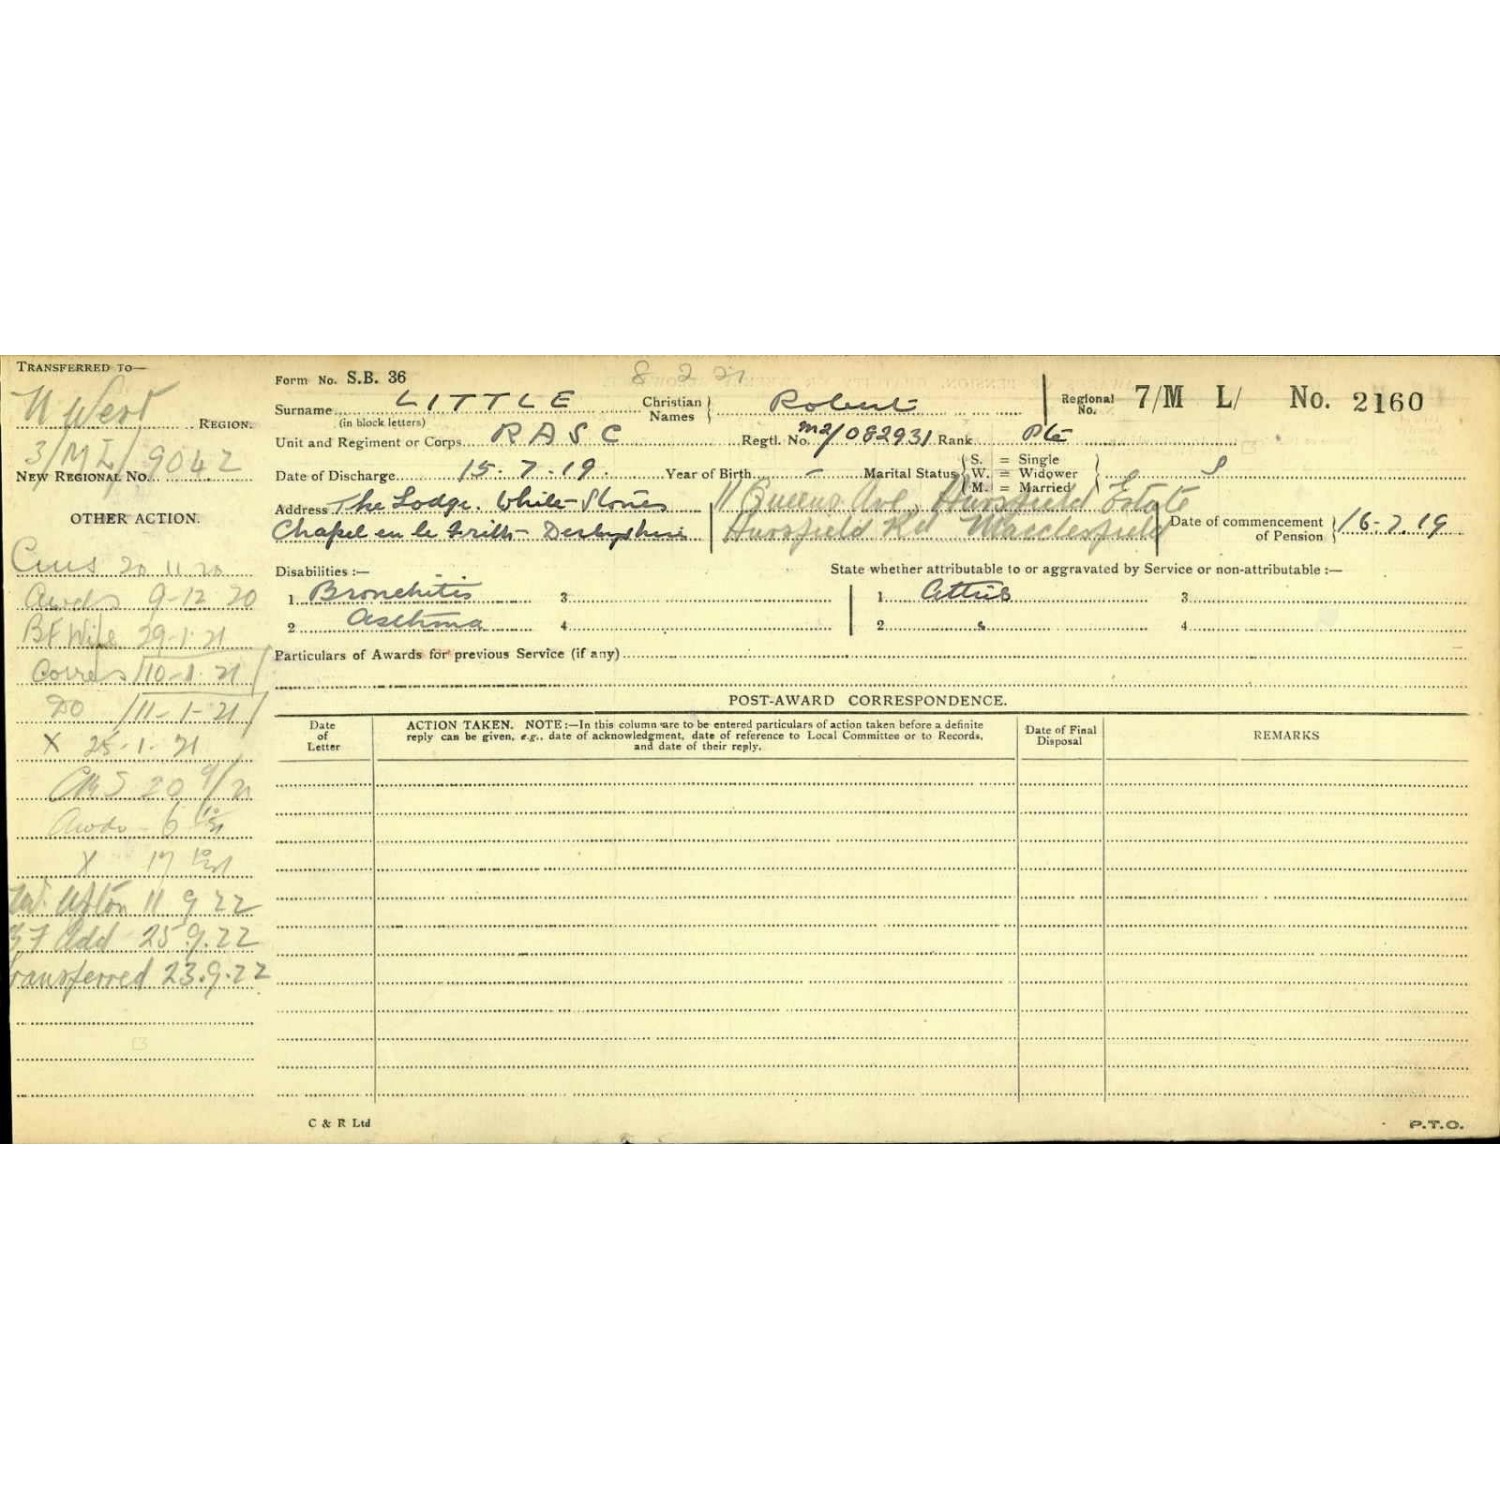 TRANSFERRED TO—
N West REGION.
3/ML/9042
NEW REGIONAL No.
OTHER ACTION.
20.11.20
Awds 9-12 20
BF Wife 29-1-21
Corres 10-1-21
Do 11-1-21
X 25-1-21
CMS 20 9/21
Awds 6 10/21
X 17 10/21
11 9 22
Add 25.9.22
Transferred 23.9.22
Form No. S.B. 36
8 2 21
Surname LITTLE Christian Names Robert
(in block letters)
Regional No. 7/M L/ No. 2160
Unit and Regiment or Corps RASC Regtl. No. M2/082931 Rank Pte
Date of Discharge 15.7.19. Year of Birth - Marital Status S. = Single W. = Widower M. = Married S
Address The Lodge. White Stones
Chapel en le Frith Derbyshire
11 Queens Ave, Hurdsfield Estate
Hurdsfield Rd Macclesfield
Date of commencement of Pension 16-7.19
Disabilities :— State whether attributable to or aggravated by Service or non-attributable :—
1 Bronchitis 3 1 Attrib 3
2 Asthma 4 2 " 4
Particulars of Awards for previous Service (if any)
POST-AWARD CORRESPONDENCE.
Date of Letter
ACTION TAKEN. NOTE:—In this column are to be entered particulars of action taken before a definite
reply can be given, e.g., date of acknowledgment, date of reference to Local Committee or to Records,
and date of their reply.
Date of Final Disposal
REMARKS
C & R Ltd
P.T.O.